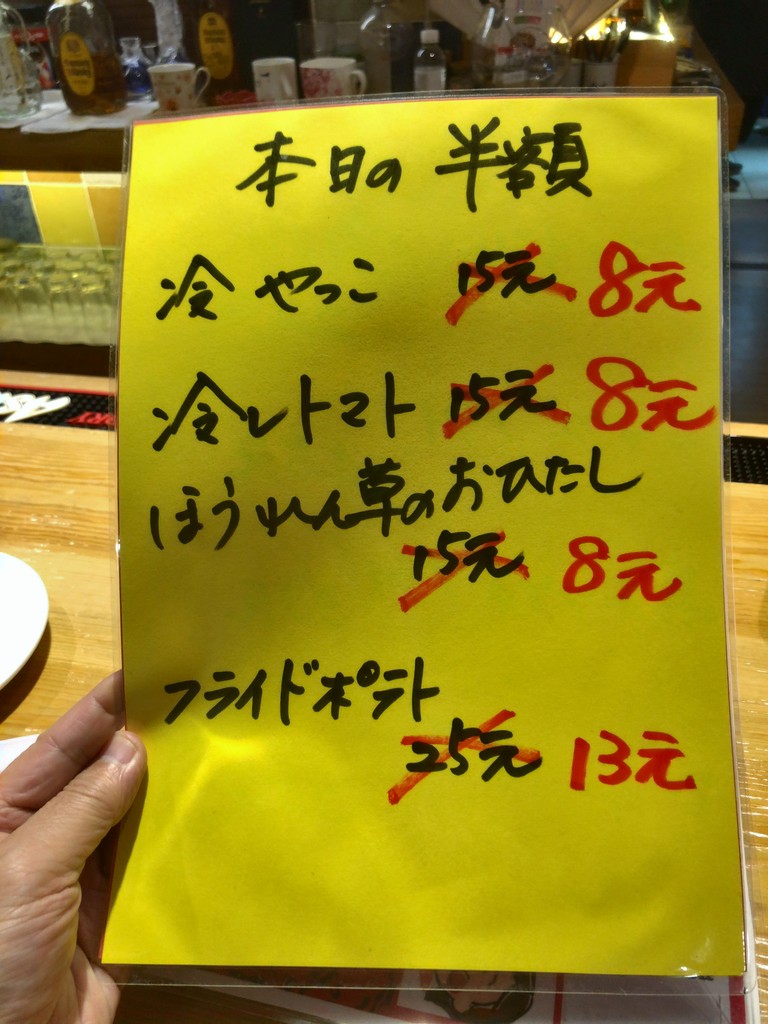 本日の 半額
冷 やっこ 15元 8元
冷しトマト 15元 8元
ほうれん草のおひたし
15元 8元
フライドポテト
25元 13元